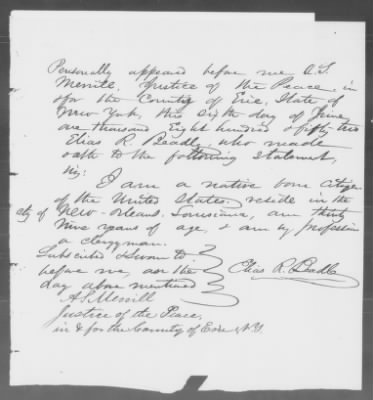 Personally appeared before me A. S.
Merrill, Justice of the Peace, in
& for the County of Erie, State of
New York, this sixth day of June,
one thousand Eight hundred & fifty two
Elias R. Beadle, who made
oath to the following statement,
viz:
I am a native born citizen
of the United States. reside in the
city of New-Orleans. Louisiana, am thirty
nine years of age, & am by profession
a clergyman.
Subscribed & sworn to
before me, on the
day above mentioned
Elias R. Beadle
A. S. Merrill
Justice of the Peace,
in & for the County of Erie, N.Y.